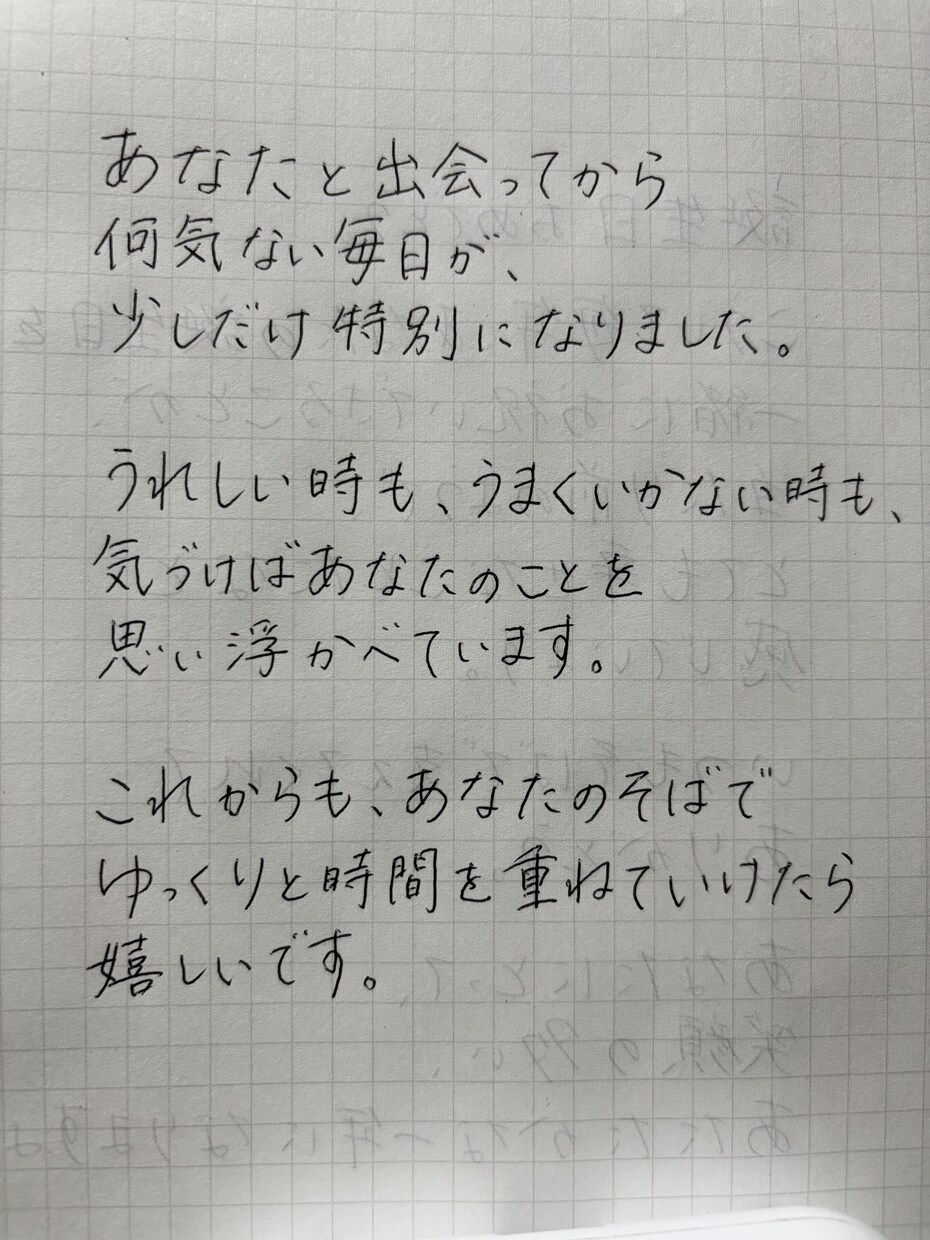 あなたと出会ってから
何気ない毎日が、
少しだけ特別になりました。
うれしい時も、うまくいかない時も、
気づけばあなたのことを
思い浮かべています。
これからも、あなたのそばで
ゆっくりと時間を重ねていけたら
嬉しいです。